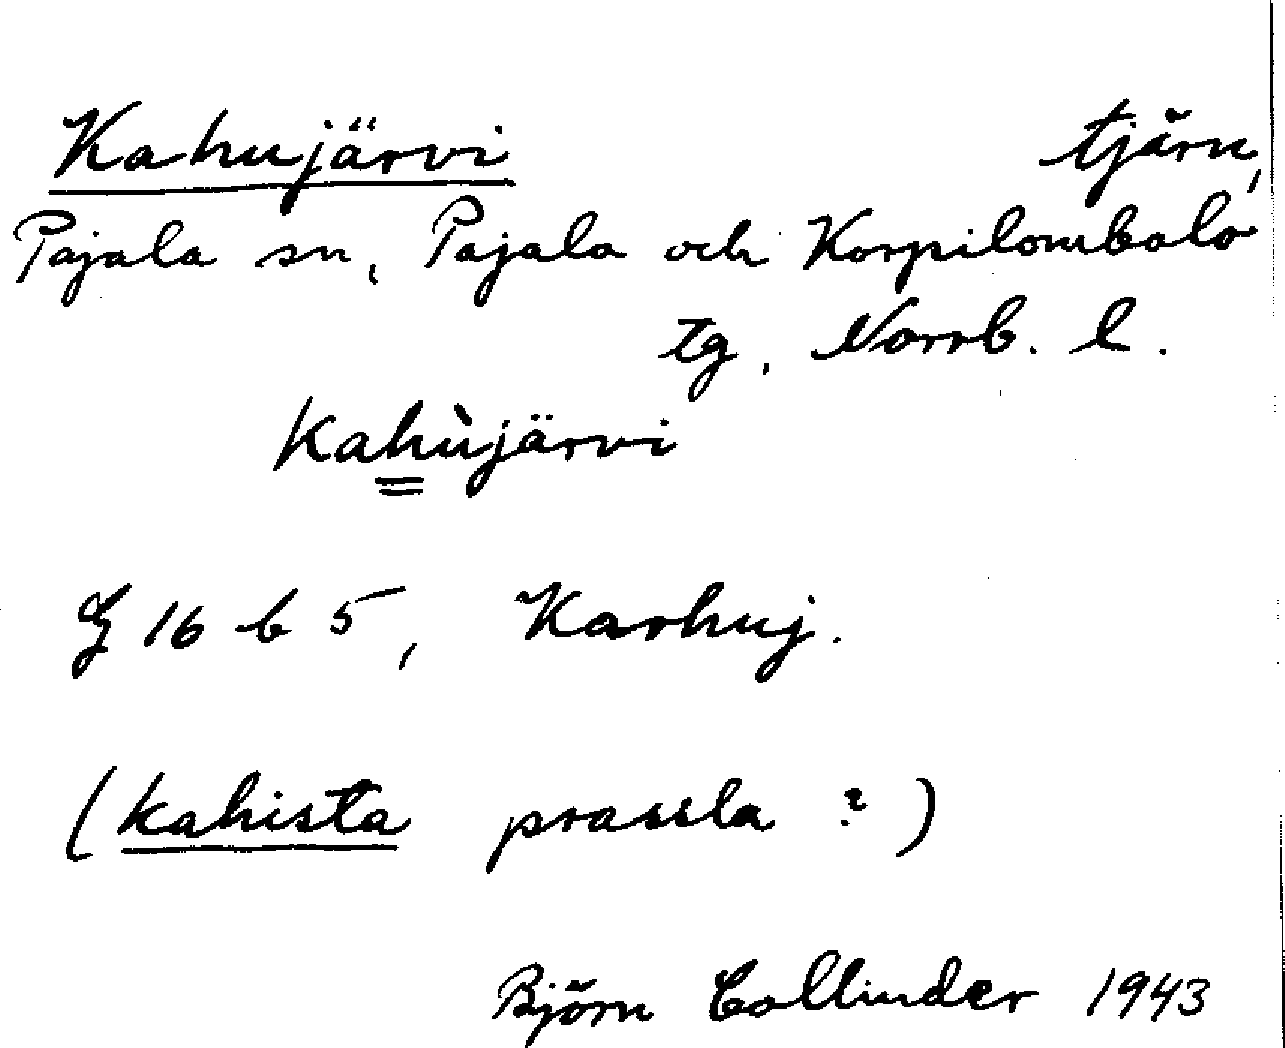 Kahujärvi tjärn,
Pajala sn, Pajala och Korpilombolo
tg, Norrb. l.
Kahùjärvi
G 16 b 5, Karhuj.
(kahista prassla ?)
Björn Collinder 1943